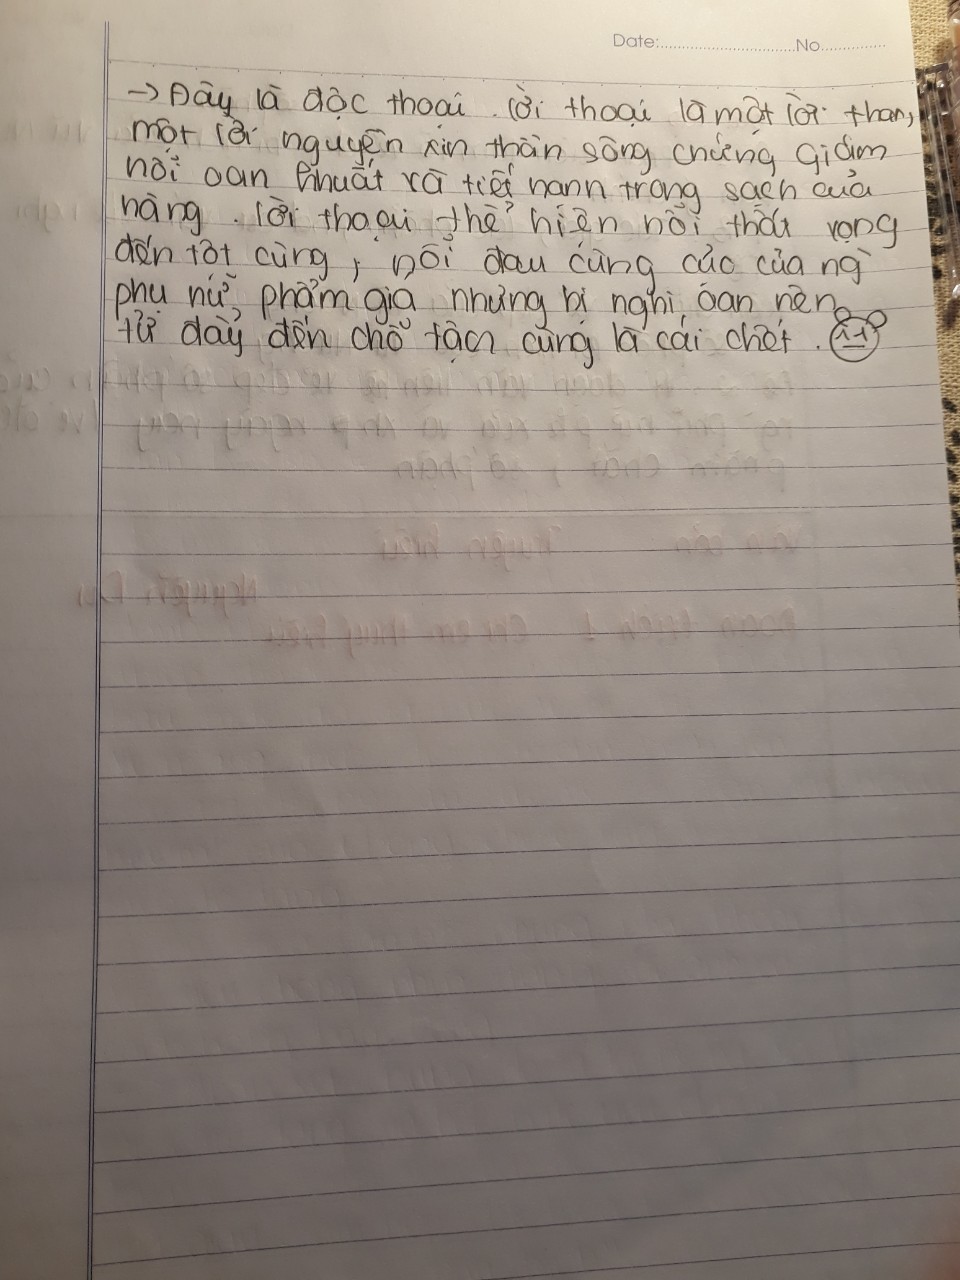 Date:..............................No...............
-> Đây là độc thoại. lời thoại là một lời than,
một lời nguyền xin thần sông chứng giám
nỗi oan khuất và tiết hạnh trong sạch của
nàng. lời thoại thể hiện nỗi thất vọng
đến tột cùng, nỗi đau cùng cực của ng
phụ nữ phẩm giá nhưng bị nghi, oan nên
tự đẩy đến chỗ tận cùng là cái chết.